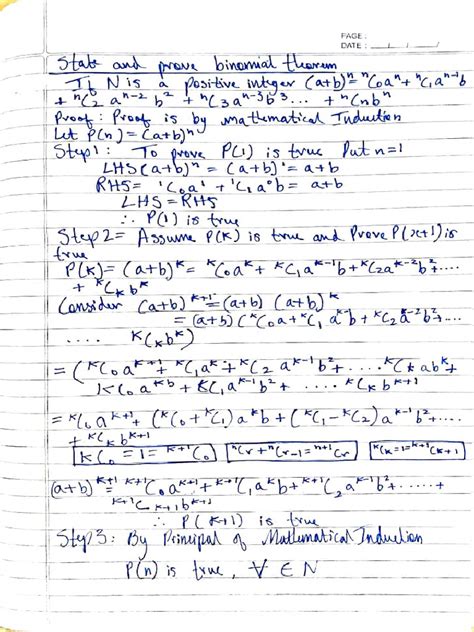 PAGE :
DATE : __/__/__
State and prove binomial theorem
If N is a positive integer (a+b)ⁿ = ⁿC₀aⁿ + ⁿC₁aⁿ⁻¹b
+ ⁿC₂ aⁿ⁻² b² + ⁿC₃aⁿ⁻³b³... + ⁿCₙbⁿ
Proof : Proof is by mathematical Induction
Let P(n) = (a+b)ⁿ
Step 1 : To prove P(1) is true Put n=1
LHS (a+b)ⁿ = (a+b)¹ = a+b
RHS = ¹C₀a¹ + ¹C₁a⁰b = a+b
LHS = RHS
∴ P(1) is true
Step 2 = Assume P(K) is true and Prove P(x+1) is
true
P(K) = (a+b)ᴷ = ᴷC₀aᴷ + ᴷC₁aᴷ⁻¹b + ᴷC₂aᴷ⁻²b²+....
+ ᴷCₖbᴷ
Consider (a+b)ᴷ⁺¹ = (a+b) (a+b)ᴷ
= (a+b) (ᴷC₀a + ᴷC₁ aᴷ⁻¹b + ᴷC₂aᴷ⁻²b²+...
.... ᴷCₖbᴷ)
= (ᴷC₀aᴷ⁺¹ + ᴷC₁aᴷ + ᴷC₂ aᴷ⁻¹b² + .... Cₖabᴷ +
ᴷC₀aᴷb + ᴷC₁aᴷ⁻¹b² + .... ᴷCₖbᴷ⁺¹
= ᴷC₀aᴷ⁺¹ + (ᴷC₀ + ᴷC₁)aᴷb + (ᴷC₁ - ᴷC₂)aᴷ⁻¹b²....
+ ᴷCₖbᴷ⁺¹
ᴷC₀ = 1 = ᴷ⁺¹C₀ ⁿCᵣ + ⁿCᵣ₋₁ = ⁿ⁺¹Cᵣ ᴷCₖ = 1 = ᴷ⁺¹Cₖ₊₁
(a+b)ᴷ⁺¹ = ᴷ⁺¹C₀aᴷ⁺¹ + ᴷ⁺¹C₁aᴷb + ᴷ⁺¹C₂aᴷ⁻¹b² + ..... +
ᴷ⁺¹Cₖ₊₁bᴷ⁺¹
∴ P(K+1) is true
Step 3 : By Principal of Mathematical Induction
P(n) is true, ∀ ∈ N